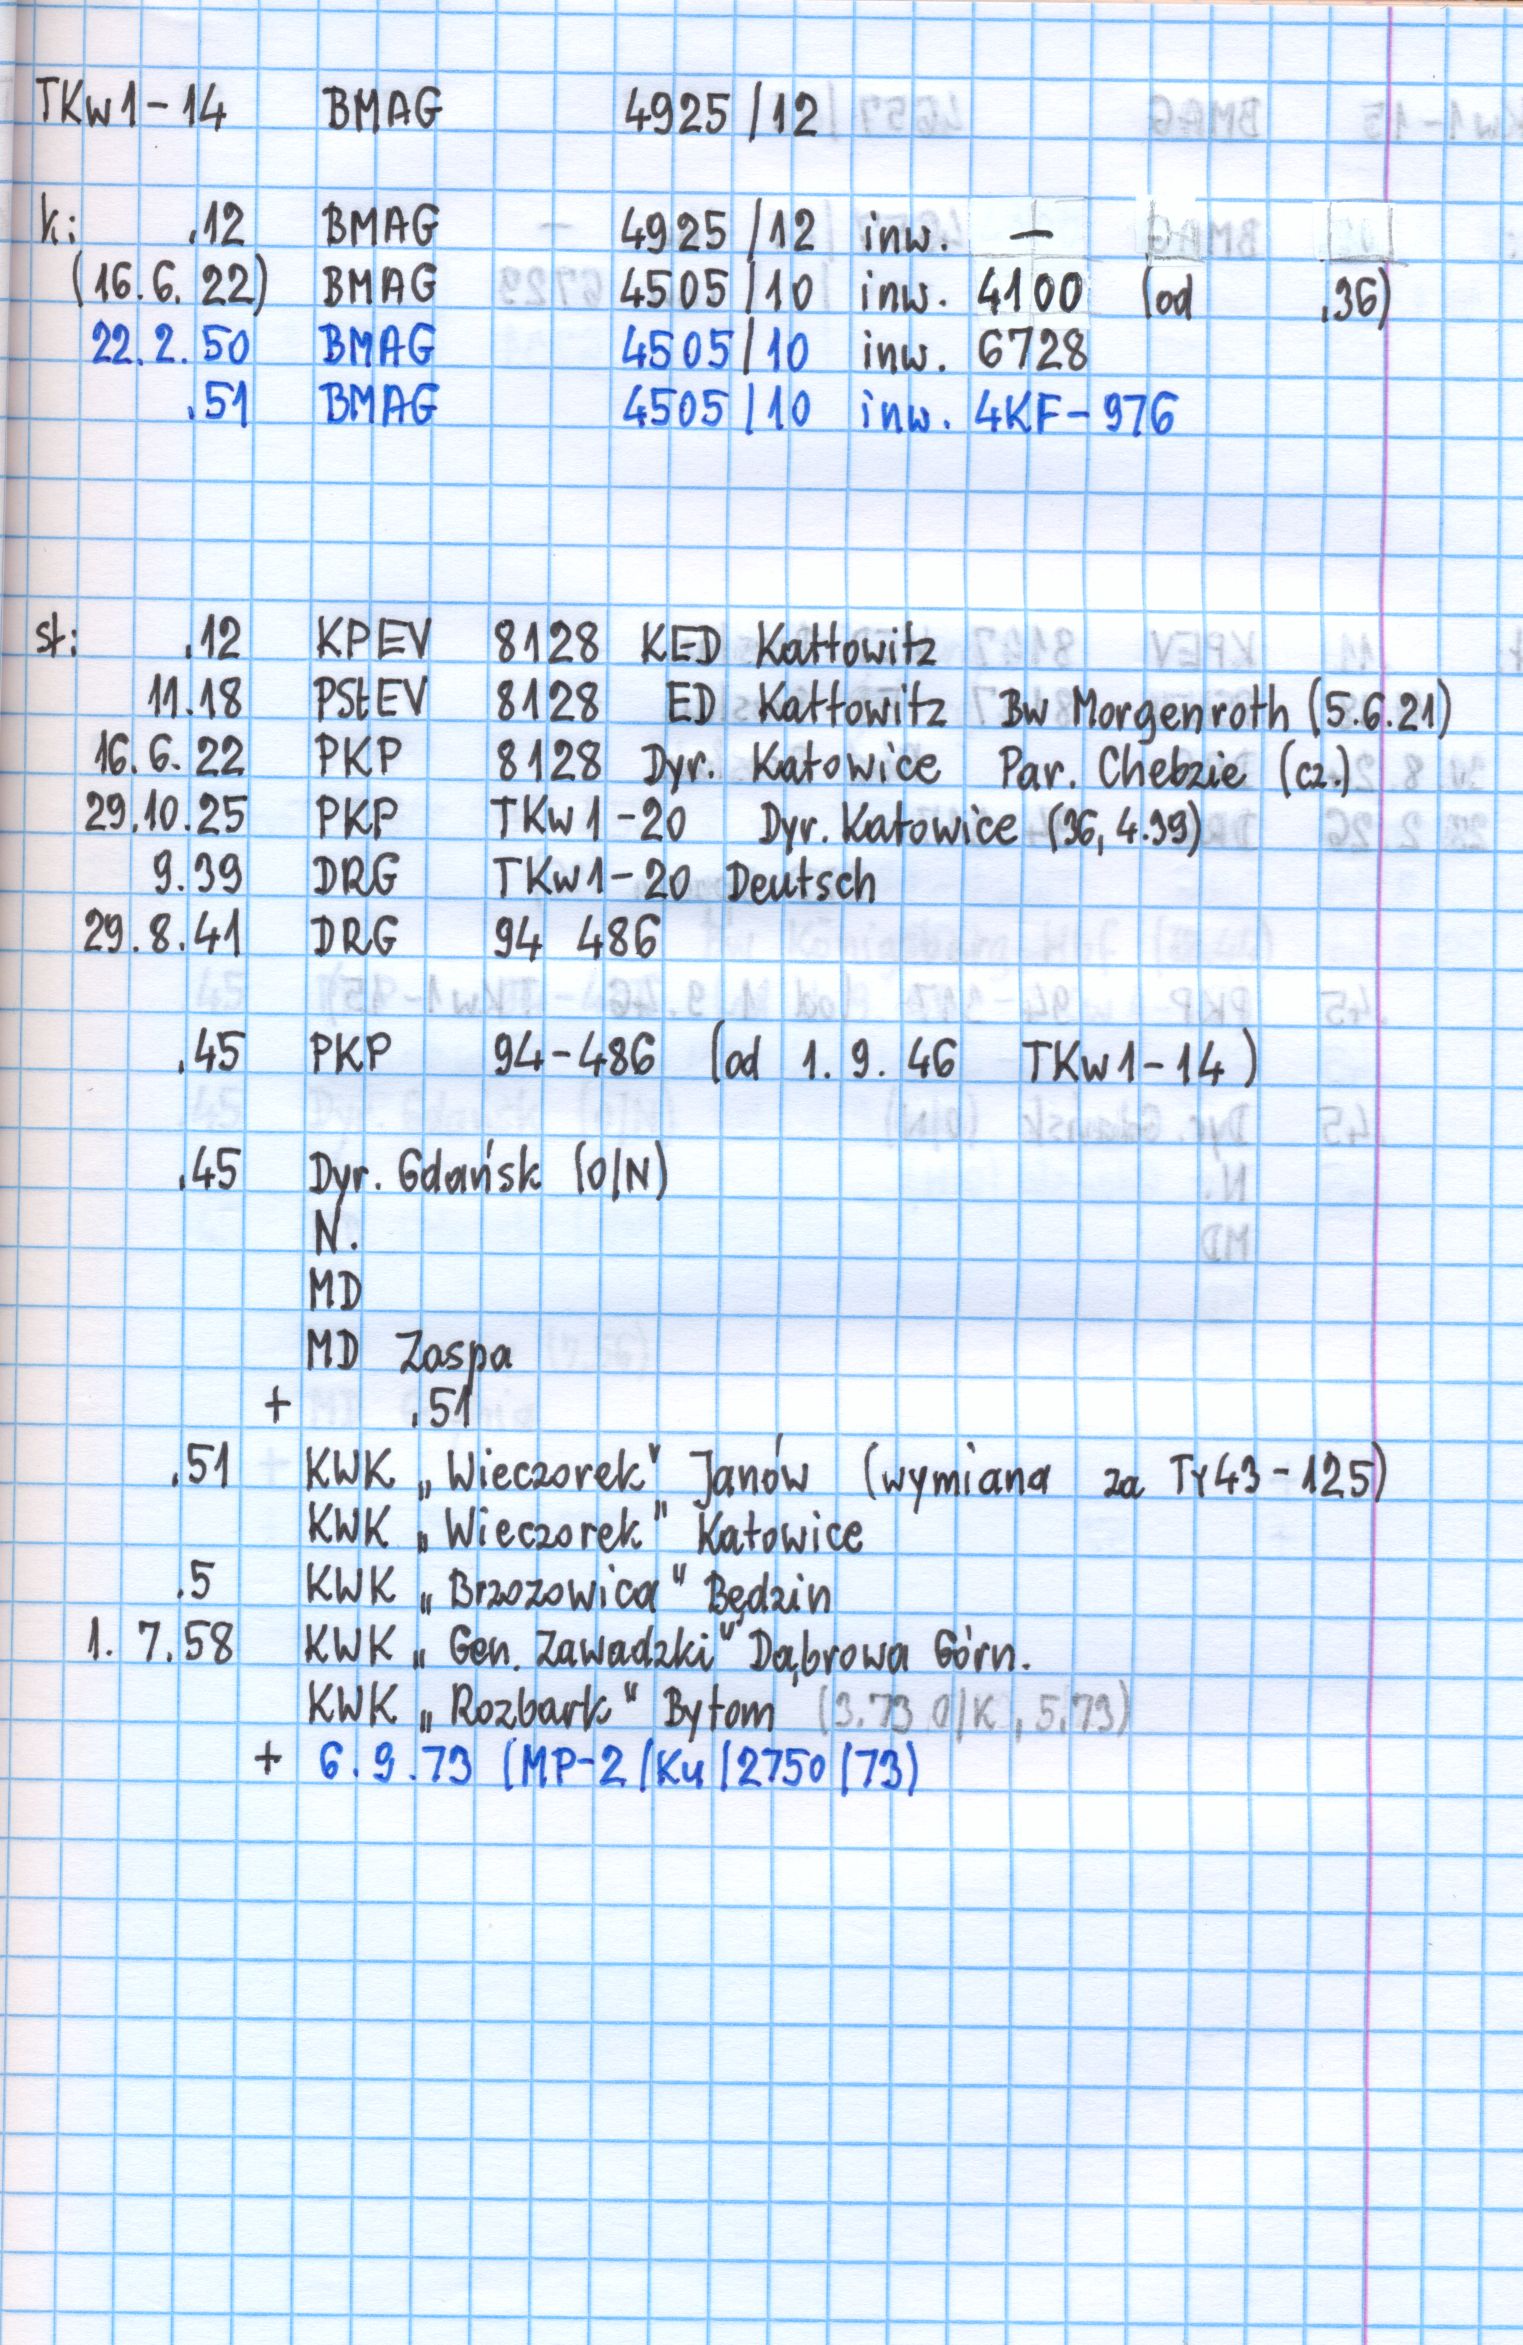 TKw1-14 BMAG 4925/12
k: .12 BMAG 4925/12 inw. —
(16.6.22) BMAG 4505/10 inw. 4100 (od .36)
22.2.50 BMAG 4505/10 inw. 6728
.51 BMAG 4505/10 inw. 4KF-976
st: .12 KPEV 8128 KED Kattowitz
11.18 PStEV 8128 ED Kattowitz Bw Morgenroth (5.6.21)
16.6.22 PKP 8128 Dyr. Katowice Par. Chebzie (cz.)
29.10.25 PKP TKw1-20 Dyr. Katowice (36, 4.39)
9.39 DRG TKw1-20 Deutsch
29.8.41 DRG 94 486
.45 PKP 94-486 (od 1.9.46 TKw1-14)
.45 Dyr. Gdańsk (O/N)
N.
MD
MD Zaspa
+ .51
.51 KWK „Wieczorek" Janów (wymiana za Ty43-125)
KWK „Wieczorek" Katowice
.5 KWK „Brzozowica" Będzin
1.7.58 KWK „Gen. Zawadzki" Dąbrowa Górn.
KWK „Rozbark" Bytom (3.73 O/K, 5.73)
+ 6.9.73 (MP-2/Ku/2750/73)